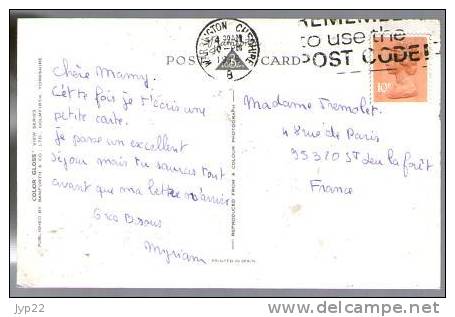 WARRINGTON CHESHIRE
REMEMBER
to use the
POST CODE!
POST CARD
10P
Chère Mamy.
Cette fois je t'écris une
petite carte.
Je passe un excellent
séjour mais tu sauras tout
avant que ma lettre n'arrive
Gros Bisous
Myriam
Madame Tremolet
48 rue de Paris
95320 St Leu la forêt
France
COLOR GLOSS VIEW SERIES
PUBLISHED BY BAMFORTH & CO. LTD. HOLMFIRTH, YORKSHIRE.
REPRODUCED FROM A COLOUR PHOTOGRAPH
PRINTED IN SPAIN
jyp22
http://www.delcampe.net